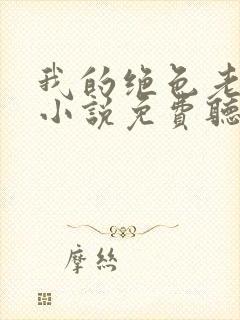 我的绝色老
小説免費聽
摩絲